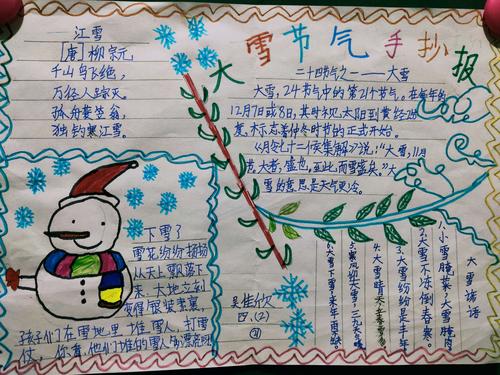 大雪节气手抄报
江雪
[唐]柳宗元
千山鸟飞绝,
万径人踪灭。
孤舟蓑笠翁,
独钓寒江雪。
二十四节气之一——大雪
大雪,24节气中的第21个节气。在每年的
12月7日或8日,其时视太阳到黄经255
度。标志着仲冬时节的正式开始。
《月令七十二候集解》说:“大雪,11月
节,大者,盛也,至此而雪盛矣。”大
雪的意思是天气更冷。
下雪了
雪花纷纷扬扬
从天上飘落下
来,大地立刻
变得银装素裹,
孩子们在雪地里堆雪人,打雪
仗,你看,他们堆的雪人多漂亮呀
四.(2)
21
大雪谚语
1.小雪腌菜,大雪腌肉
2.大雪不冻倒春寒。
3.大雪纷纷是丰年
4.大雪晴天,立春雪多